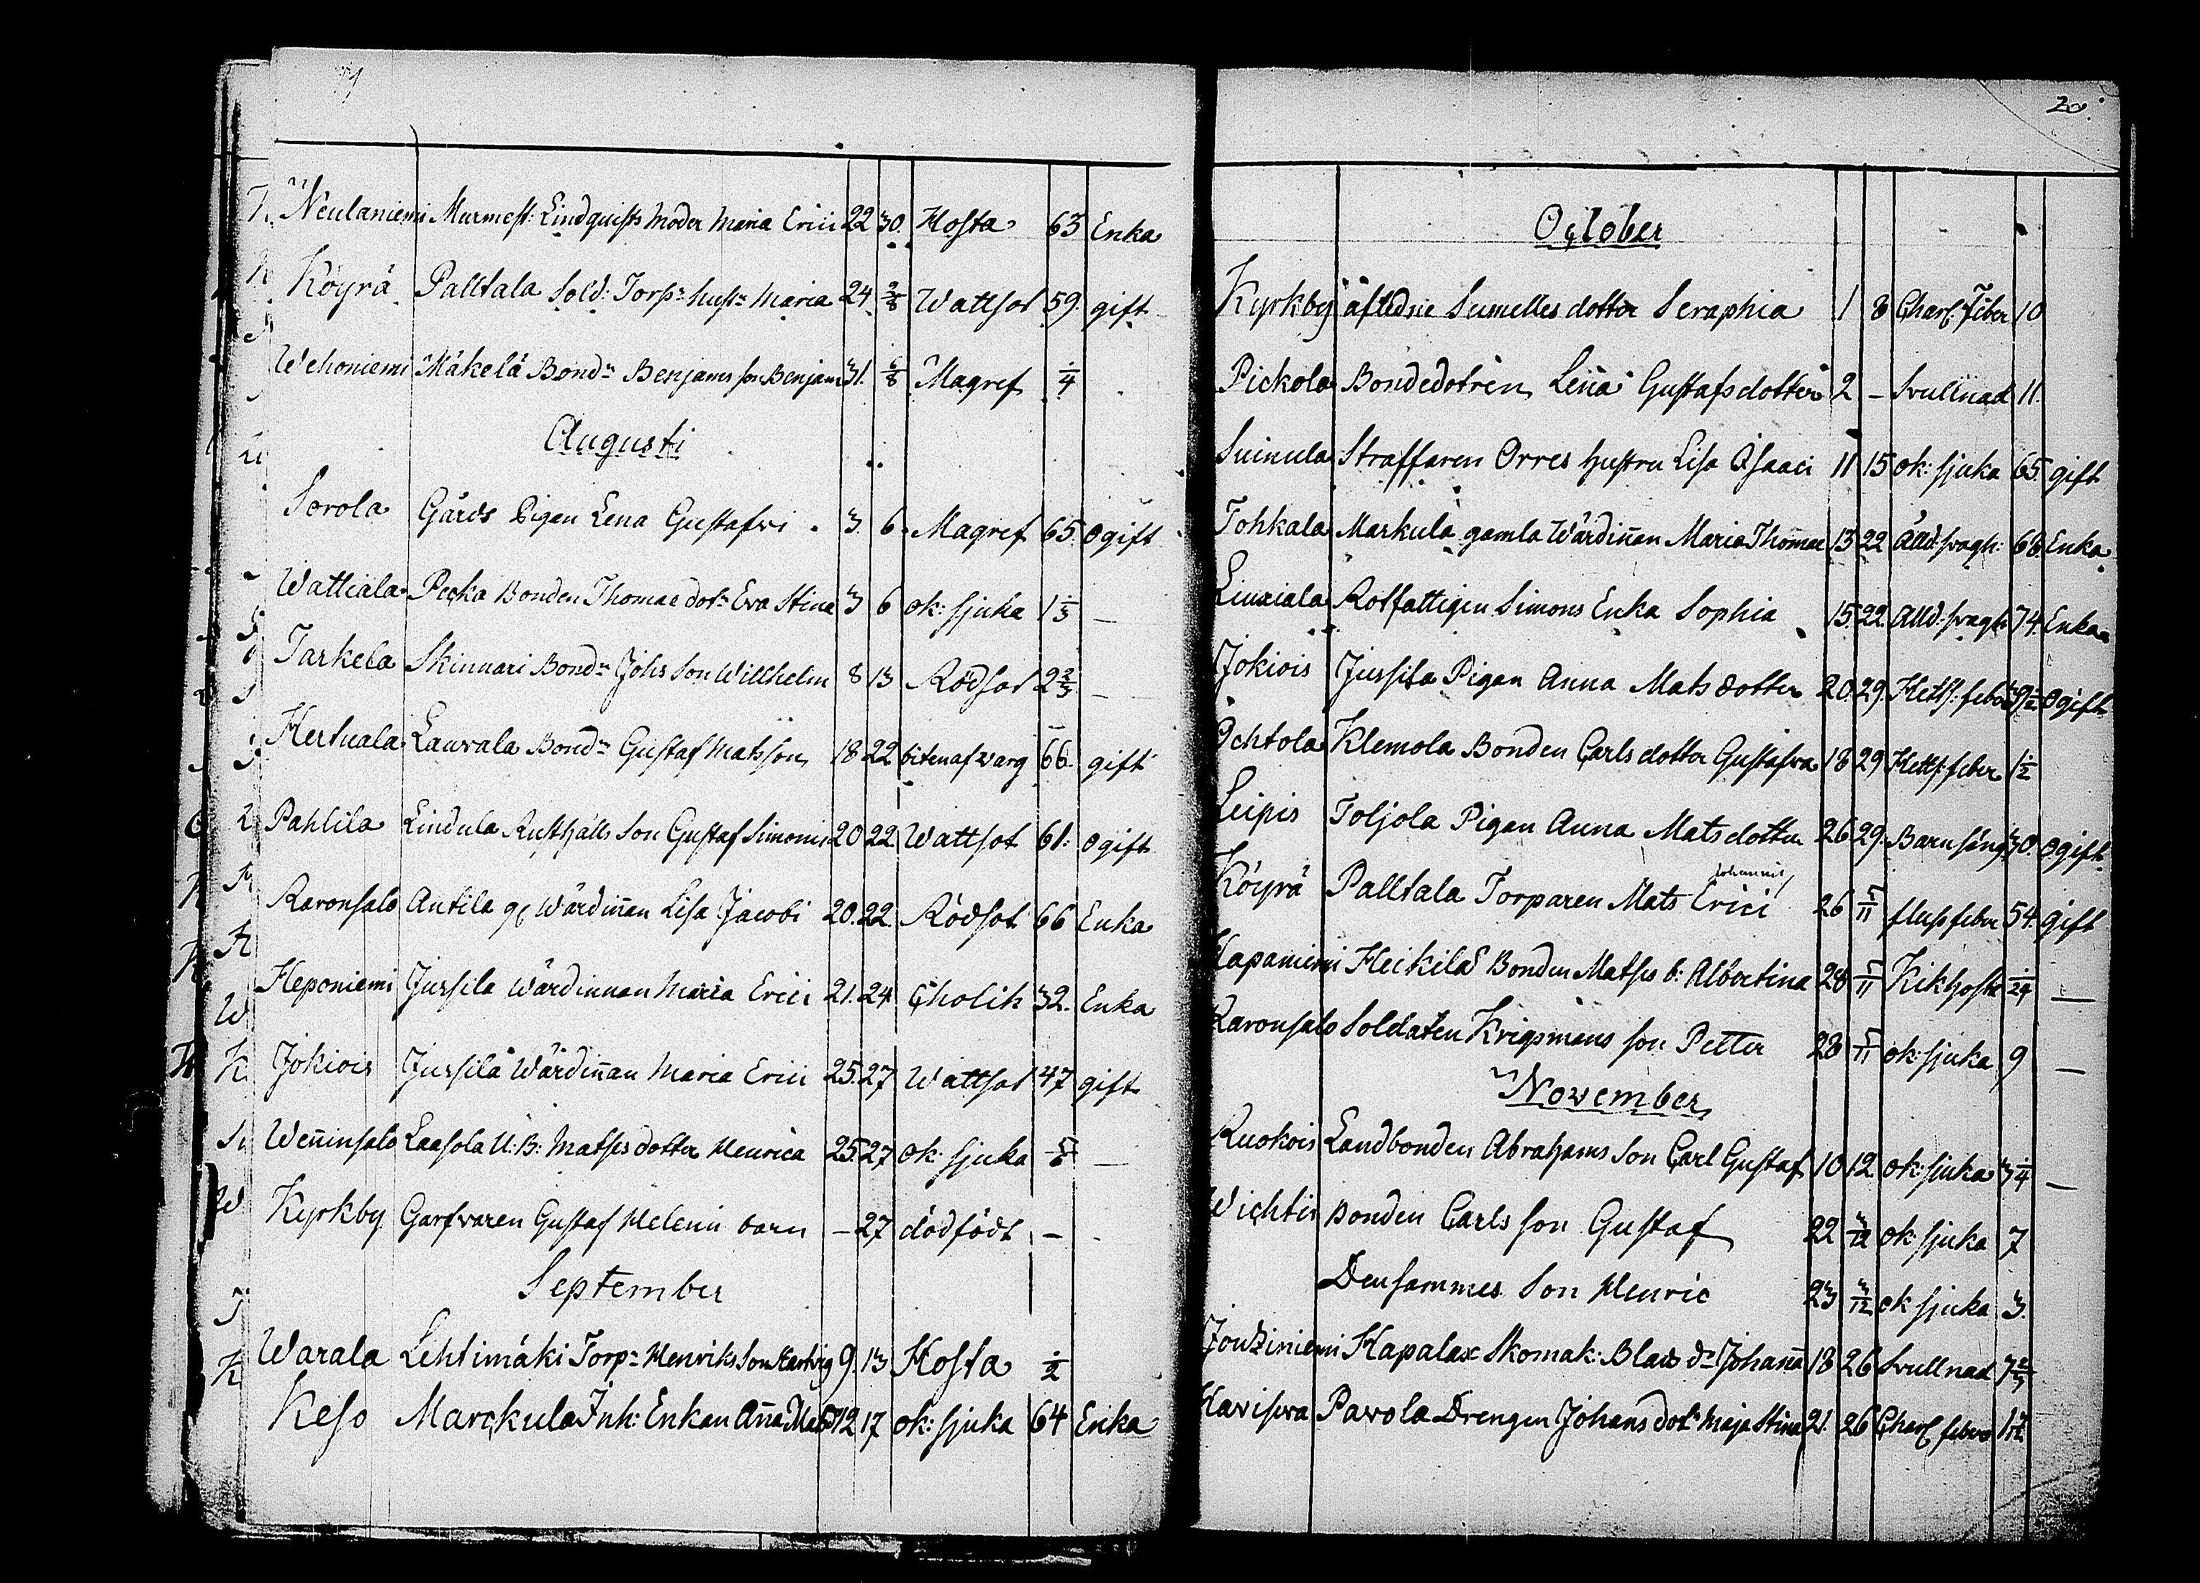 Neulaniemi Murmest: Lindquists moder Maria Erici 22 30. Hosta 63 Enka
Köyrä Palltala Sold: Torp:s hust: Maria 24 2/8 Wattsot 59. gift
Wehoniemi Mäkelä Bond:n Benjams son Benjam 31. 6/8 Magref 1/4
Augusti
Sorola Gårds Pigan Lena Gustafvi 3. 6 Magref 65. Ogift
Wattiala Pecka Bonden Thomae dot:r Eva Stina 3 6 ok: sjuka 1 1/3 —
Tarkela Skinnari Bond:n Johs Son Willhelm 8 13 Rödsot 2 2/3 —
Hertuala Lauvala Bond:n Gustaf Matsson 18 22 biten af varg 66. gift
Pahlila Lindula Rusthålls Son Gustaf Simonis 20 22 Wattsot 61: Ogift
Raronsalo Antila g: Wärdiñan Lisa Jacobi 20. 22. Rödsot 66 Enka
Heponiemi Jussila Wärdinnan Maria Erici 21. 24. Cholik 32. Enka
Jokiois Jussila Wärdiñan Maria Erici 25. 27 Wattsot 47 gift
Weñinsalo Laasola U: B: Matsis dotter Henrica 25. 27 ok: sjuka 5/6 —
Kyrkby Garfvaren Gustaf Helenii barn — 27 dödfödt —
September
Warala Lehtimäki Torp:s Henriks Son Hartvig 9. 13 Hosta 1/2
Keso Marckula Inh: Enkan Aña Matsd 12 17 ok: sjuka 64 Enka
20.
October
Kyrkby afledne Sumelles dotter Seraphia 1 8 Charl: Feber 10
Pickola Bondedotren Lena Gustafsdotter 2 — Svullnad 11.
Suinula Straffaren Orres hustru Lisa Isaaci 11 15 ok: sjuka 65. gift
Tohkala Markula gamla Wärdiñan Maria Thomae 13 22 Ålld: svagh: 68 Enka
Liuxiala Rotfattigen Simons Enka Sophia 15 22. Ålld: svagh 74. Enka
Jokiois Jussila Pigan Anna Mats dotter 20. 29. Hetts: feber 39 1/2 Ogift
Ochtola Klemola Bonden Carls dotter Gustafva 18 29 Hetts: feber 1 1/2
Leipis Toljola Pigan Anna Matsdotter 26 29. Barnsäng 30. Ogift
Johannis
Köyrä Palltala Torparen Mats Erici 26 5/11 fluss feber 54. gift
Hapaniemi Heikilä Bonden Matsis b: Albertina 28 5/11 Kikhosta 1/24 —
Raronsalo Soldaten Krigsmans son Petter 28 5/11 ok: sjuka 9 —
November
Ruokois Landbonden Abrahams Son Carl Gustaf 10 12 ok: sjuka 3 1/4 —
Wichtis Bonden Carls son Gustaf 22 3/12 ok: sjuka 7
Densammes Son Henric 23 3/12 ok sjuka 3.
Jouziniemi Kapalax Skomak: Blads d:r Johana 18 26 Svullnad 7 2/3
Havisva Pavola Drengen Johans dot:r Maja Stina 21. 26 Charl feber 1 1/12